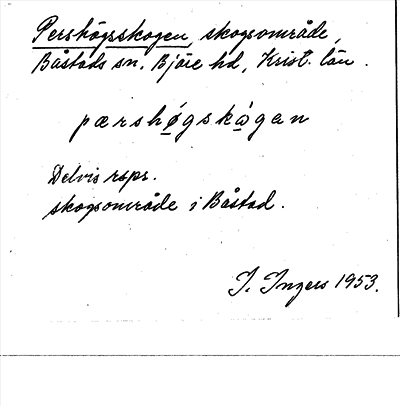 Pershögsskogen, skogsområde,
Båstads sn. Bjäre hd, Krist. län.
pærshø̱gsko̱gan
Delvis rspr.
skogsområde i Båstad.
I. Ingers 1953.